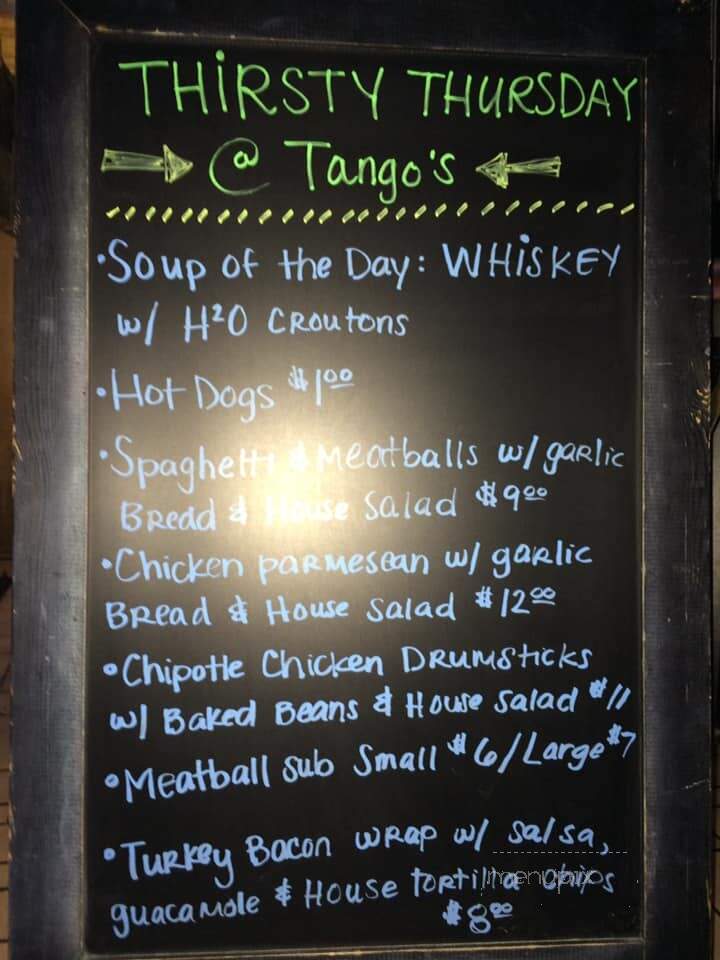 THiRSTY THURSDAY
@ Tango's
•Soup of the Day: WHiSKEY
w/ H²O CROutons
•Hot Dogs $1.00
•Spaghetti & Meatballs w/ garlic
Bread & House Salad $9.00
•Chicken parmesean w/ garlic
Bread & House Salad $12.00
•Chipotle Chicken DRUMSticks
w/ Baked Beans & House Salad $11
•Meatball sub Small $6/Large $7
•Turkey Bacon wrap w/ salsa,
guacamole & House tortilla chips
$8.00
menupix